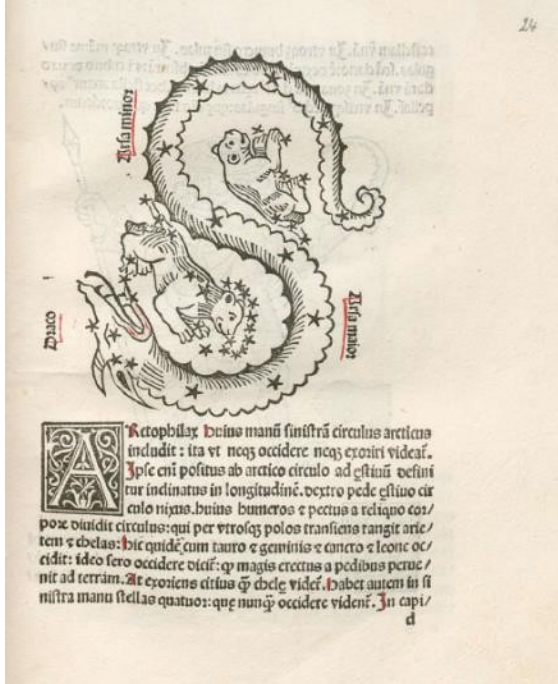 24
Ursa minor
Draco
Ursa maior
ARctophilax huius manū sinistrā circulus arcticus
includit : ita vt neqȝ occidere neqȝ exoriri videat̄.
Ipse eni positus ab arctico circulo ad ęstiuū defini
tur inclinatus in longitudinē. dextro pede ęstiuo cir
culo nixus. huius humeros ⁊ pectus a reliquo cor/
pore diuidit circulus: qui per vtrosqȝ polos transiens tangit arie/
tem ⁊ chelas: hic quidē cum tauro ⁊ geminis ⁊ cancro ⁊ leone oc/
cidit: ideo sero occidere dicit̄: qȝ magis erectus a pedibus perue/
nit ad terram. At exoriens citius qȝ chelę videt̄. Habet autem in si
nistra manu stellas quatuor: quę nunqȝ occidere vident̄. In capi/
d